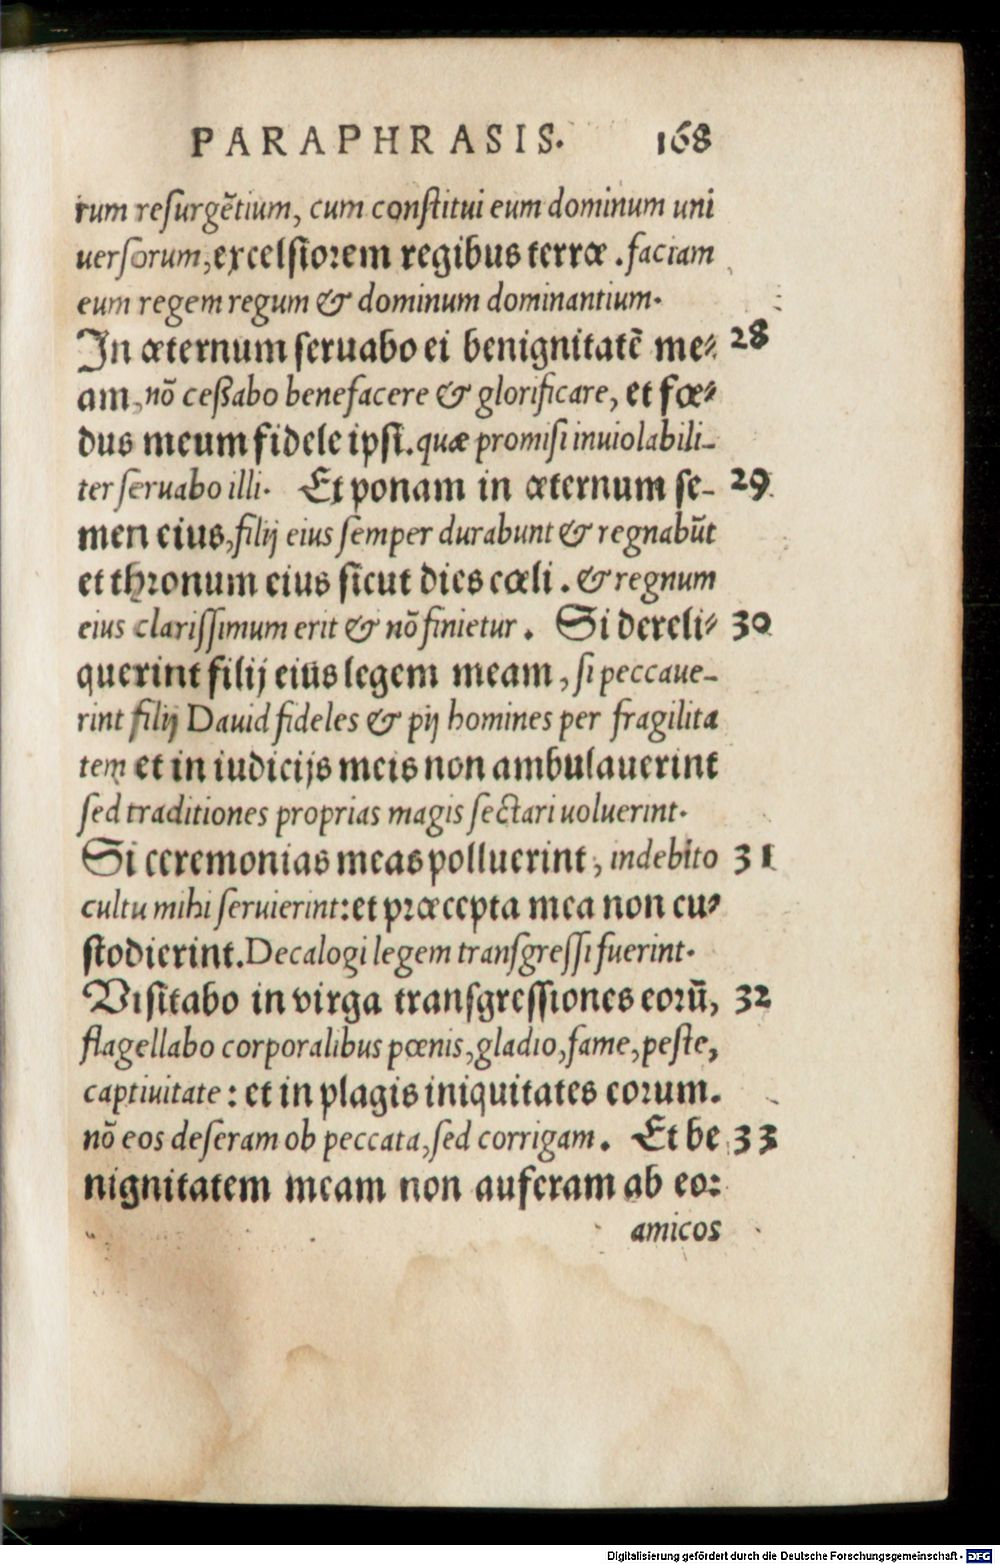 PARAPHRASIS. 168
rum resurgẽtium, cum constitui eum dominum uni
uersorum, excelsiorem regibus terræ. faciam
eum regem regum & dominum dominantium.
In æternum seruabo ei benignitatẽ me⸗ 28
am, nõ ceßabo benefacere & glorificare, et fœ⸗
dus meum fidele ipsi. quæ promisi inuiolabili-
ter seruabo illi. Et ponam in æternum se- 29
men eius, filij eius semper durabunt & regnabũt
et thronum eius sicut dies cœli. & regnum
eius clarissimum erit & nõ finietur. Si dereli⸗ 30
querint filij eius legem meam, si peccaue-
rint filij Dauid fideles & pij homines per fragilita
tem et in iudicijs meis non ambulauerint
sed traditiones proprias magis sectari uoluerint.
Si ceremonias meas polluerint, indebito 31
cultu mihi seruierint: et præcepta mea non cu⸗
stodierint. Decalogi legem transgressi fuerint.
Visitabo in virga transgressiones eorũ, 32
flagellabo corporalibus pœnis, gladio, fame, peste,
captiuitate: et in plagis iniquitates eorum.
nõ eos deseram ob peccata, sed corrigam. Et be 33
nignitatem meam non auferam ab eo:
amicos
Digitalisierung gefördert durch die Deutsche Forschungsgemeinschaft - DFG